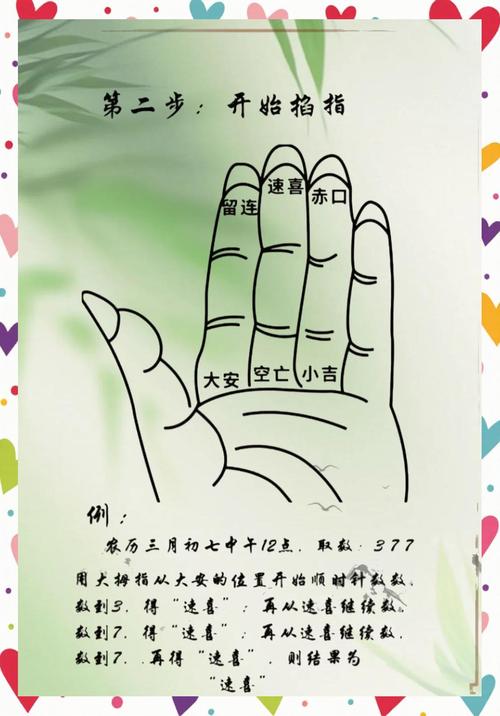 第二步：开始掐指
速喜
留连 赤口
大安 空亡 小吉
例：
农历三月初七中午12点，取数：377
用大拇指从大安的位置开始顺时针数数，
数到3，得“速喜”；再从速喜继续数，
数到7，得“速喜”；再从速喜继续数，
数到7，再得“速喜”，则结果为
“速喜”